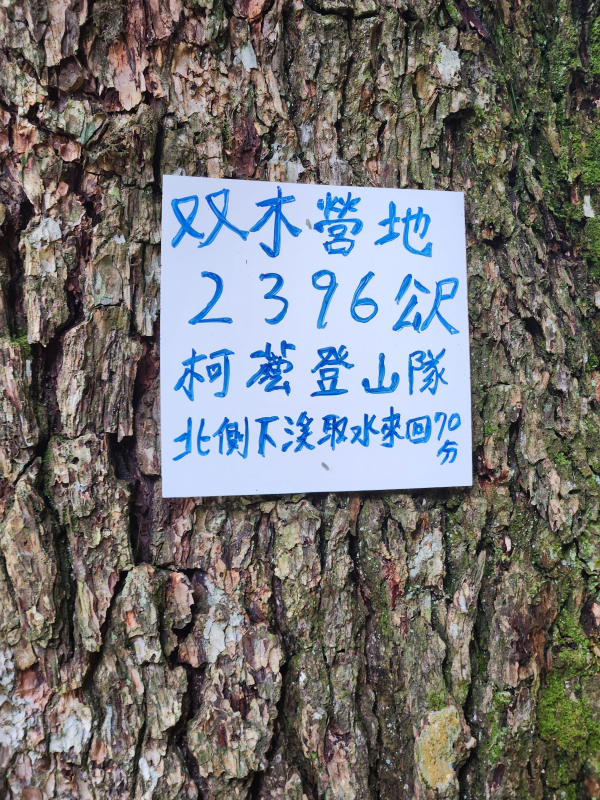 双木營地
2396公尺
柯蕓登山隊
北側下溪取水來回70分